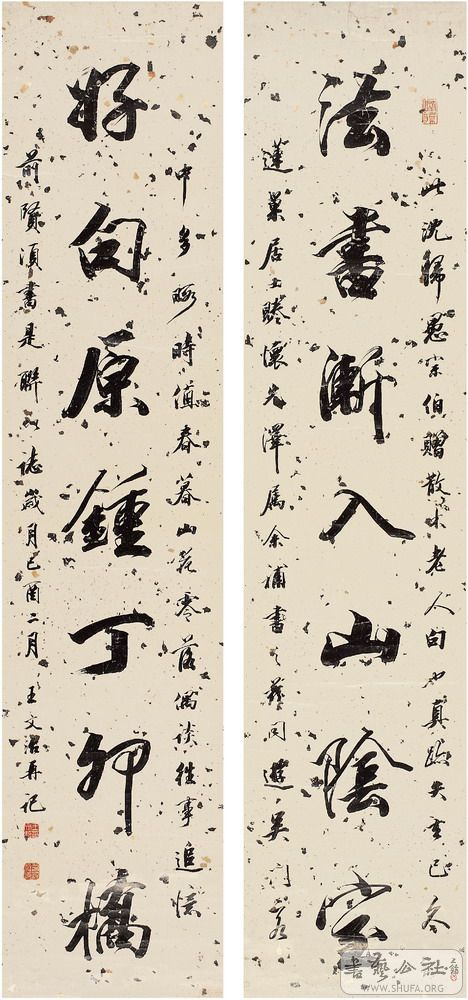 此沈归愚宗伯赠散木老人句也真迹失去己冬
法書漸入山陰室
蓬巢居士睠懷先澤屬余補書之於同遊吳門客
中身畂時值春暮山花零落偶談往事追憶
好句原鍾丁卯橋
前賢須書是聯以誌歲月己酉二月王文治再記
書藝公社
WWW.SHUFA.ORG